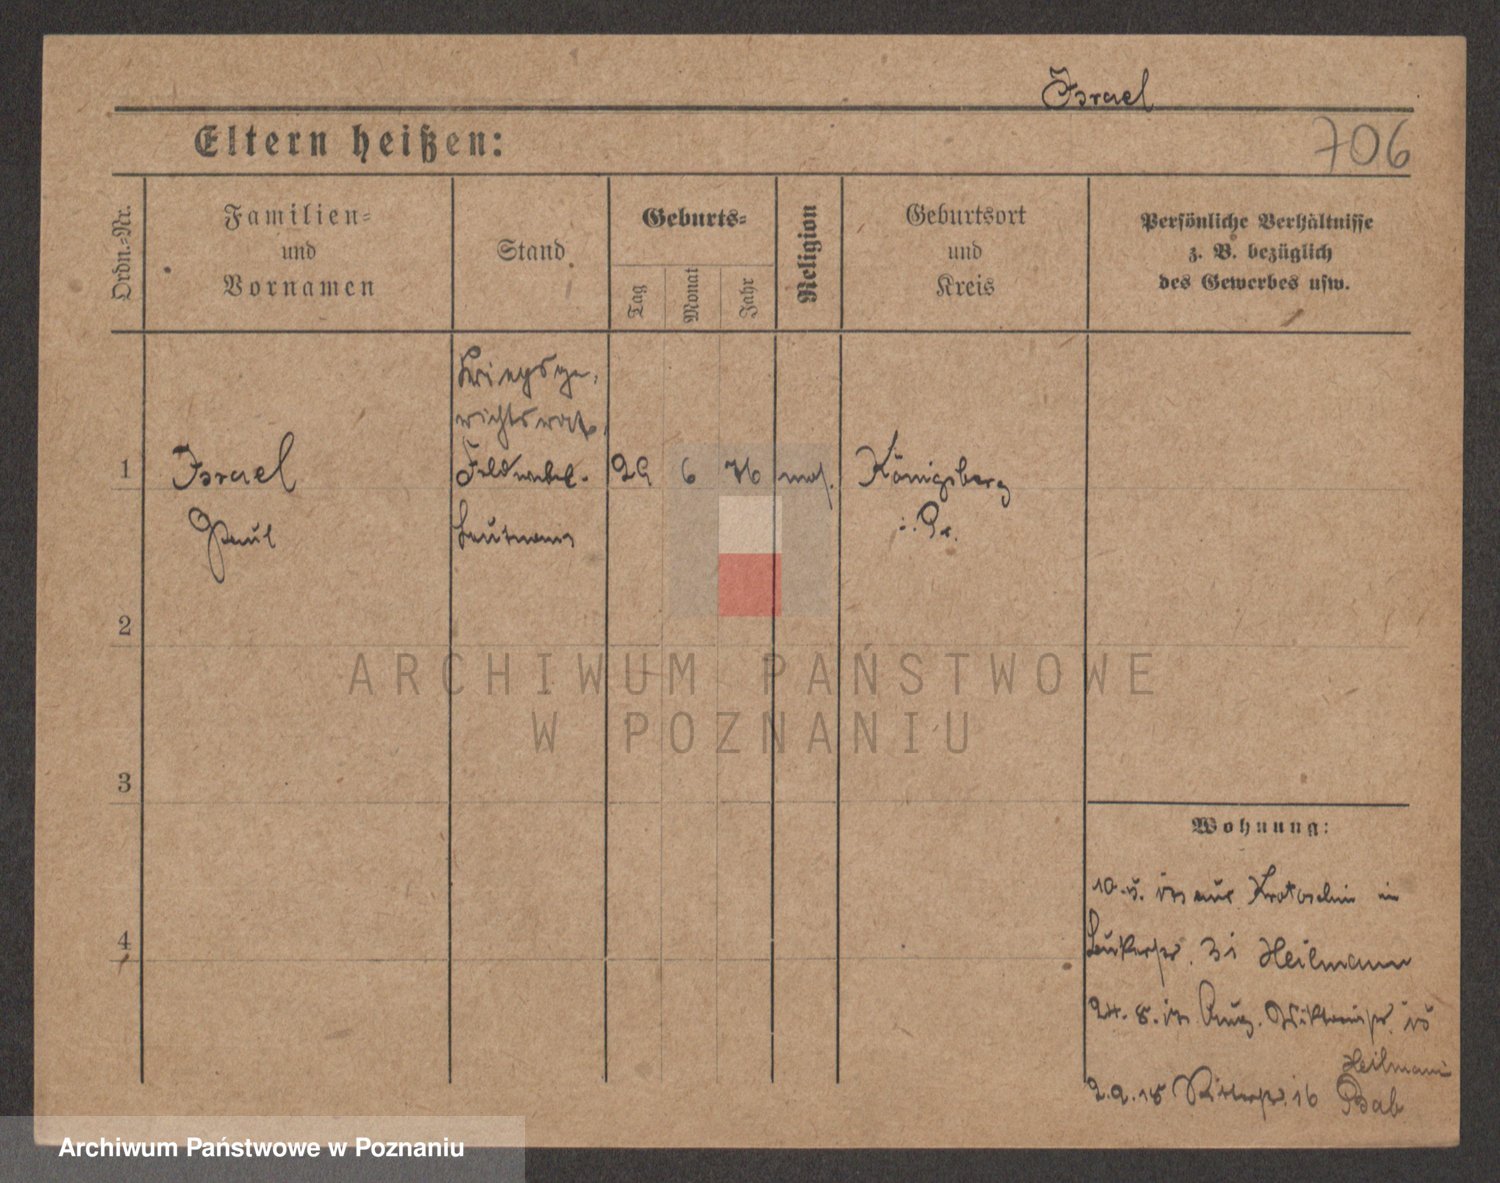 Israel
Eltern heißen:
706
Ordn.-Nr.
Familien-
und
Vornamen
Stand
Geburts-
Tag
Monat
Jahr
Religion
Geburtsort
und
Kreis
Persönliche Verhältnisse
z. B. bezüglich
des Gewerbes usw.
Kriegsge-
richtsrat,
1 Israel Feldwebel- 29 6 76 mos. Königsberg
Paul Leutnant i. Pr.
2
ARCHIWUM PAŃSTWOWE
W POZNANIU
3
Wohnung:
aus Krotoschin in
4
31 Heilmann
24. 8. Aug. Viktoriastr.
Heilmann
2.9.15 Ritterstr. 16 Bab
Archiwum Państwowe w Poznaniu